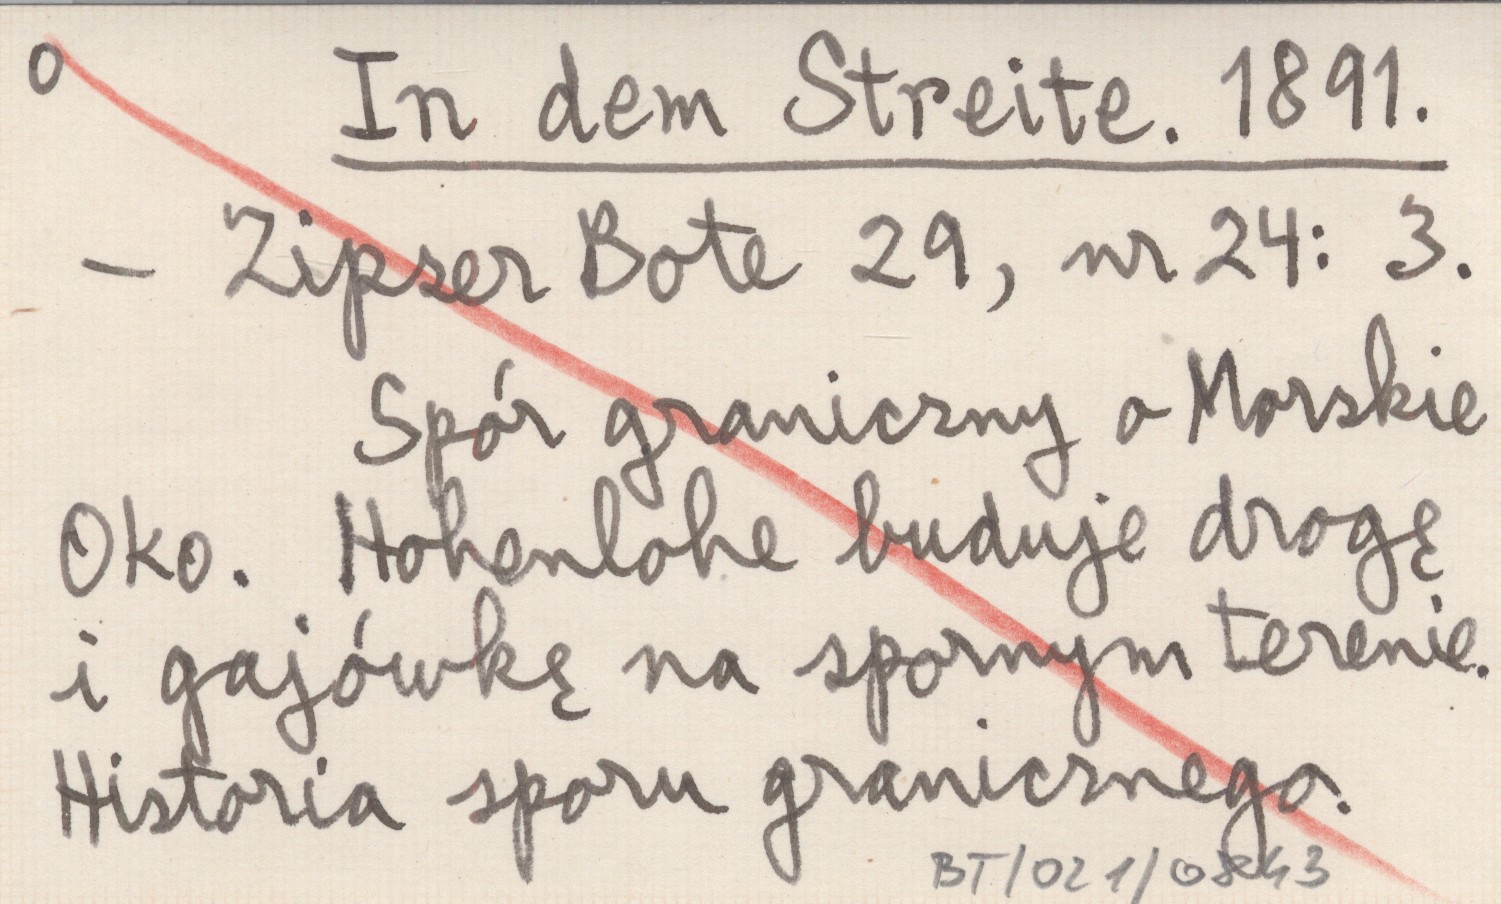 o In dem Streite. 1891.
– Zipser Bote 29, nr 24: 3.
Spór graniczny o Morskie
Oko. Hohenlohe buduje drogę
i gajówkę na spornym terenie.
Historia sporu granicznego.
BT/021/